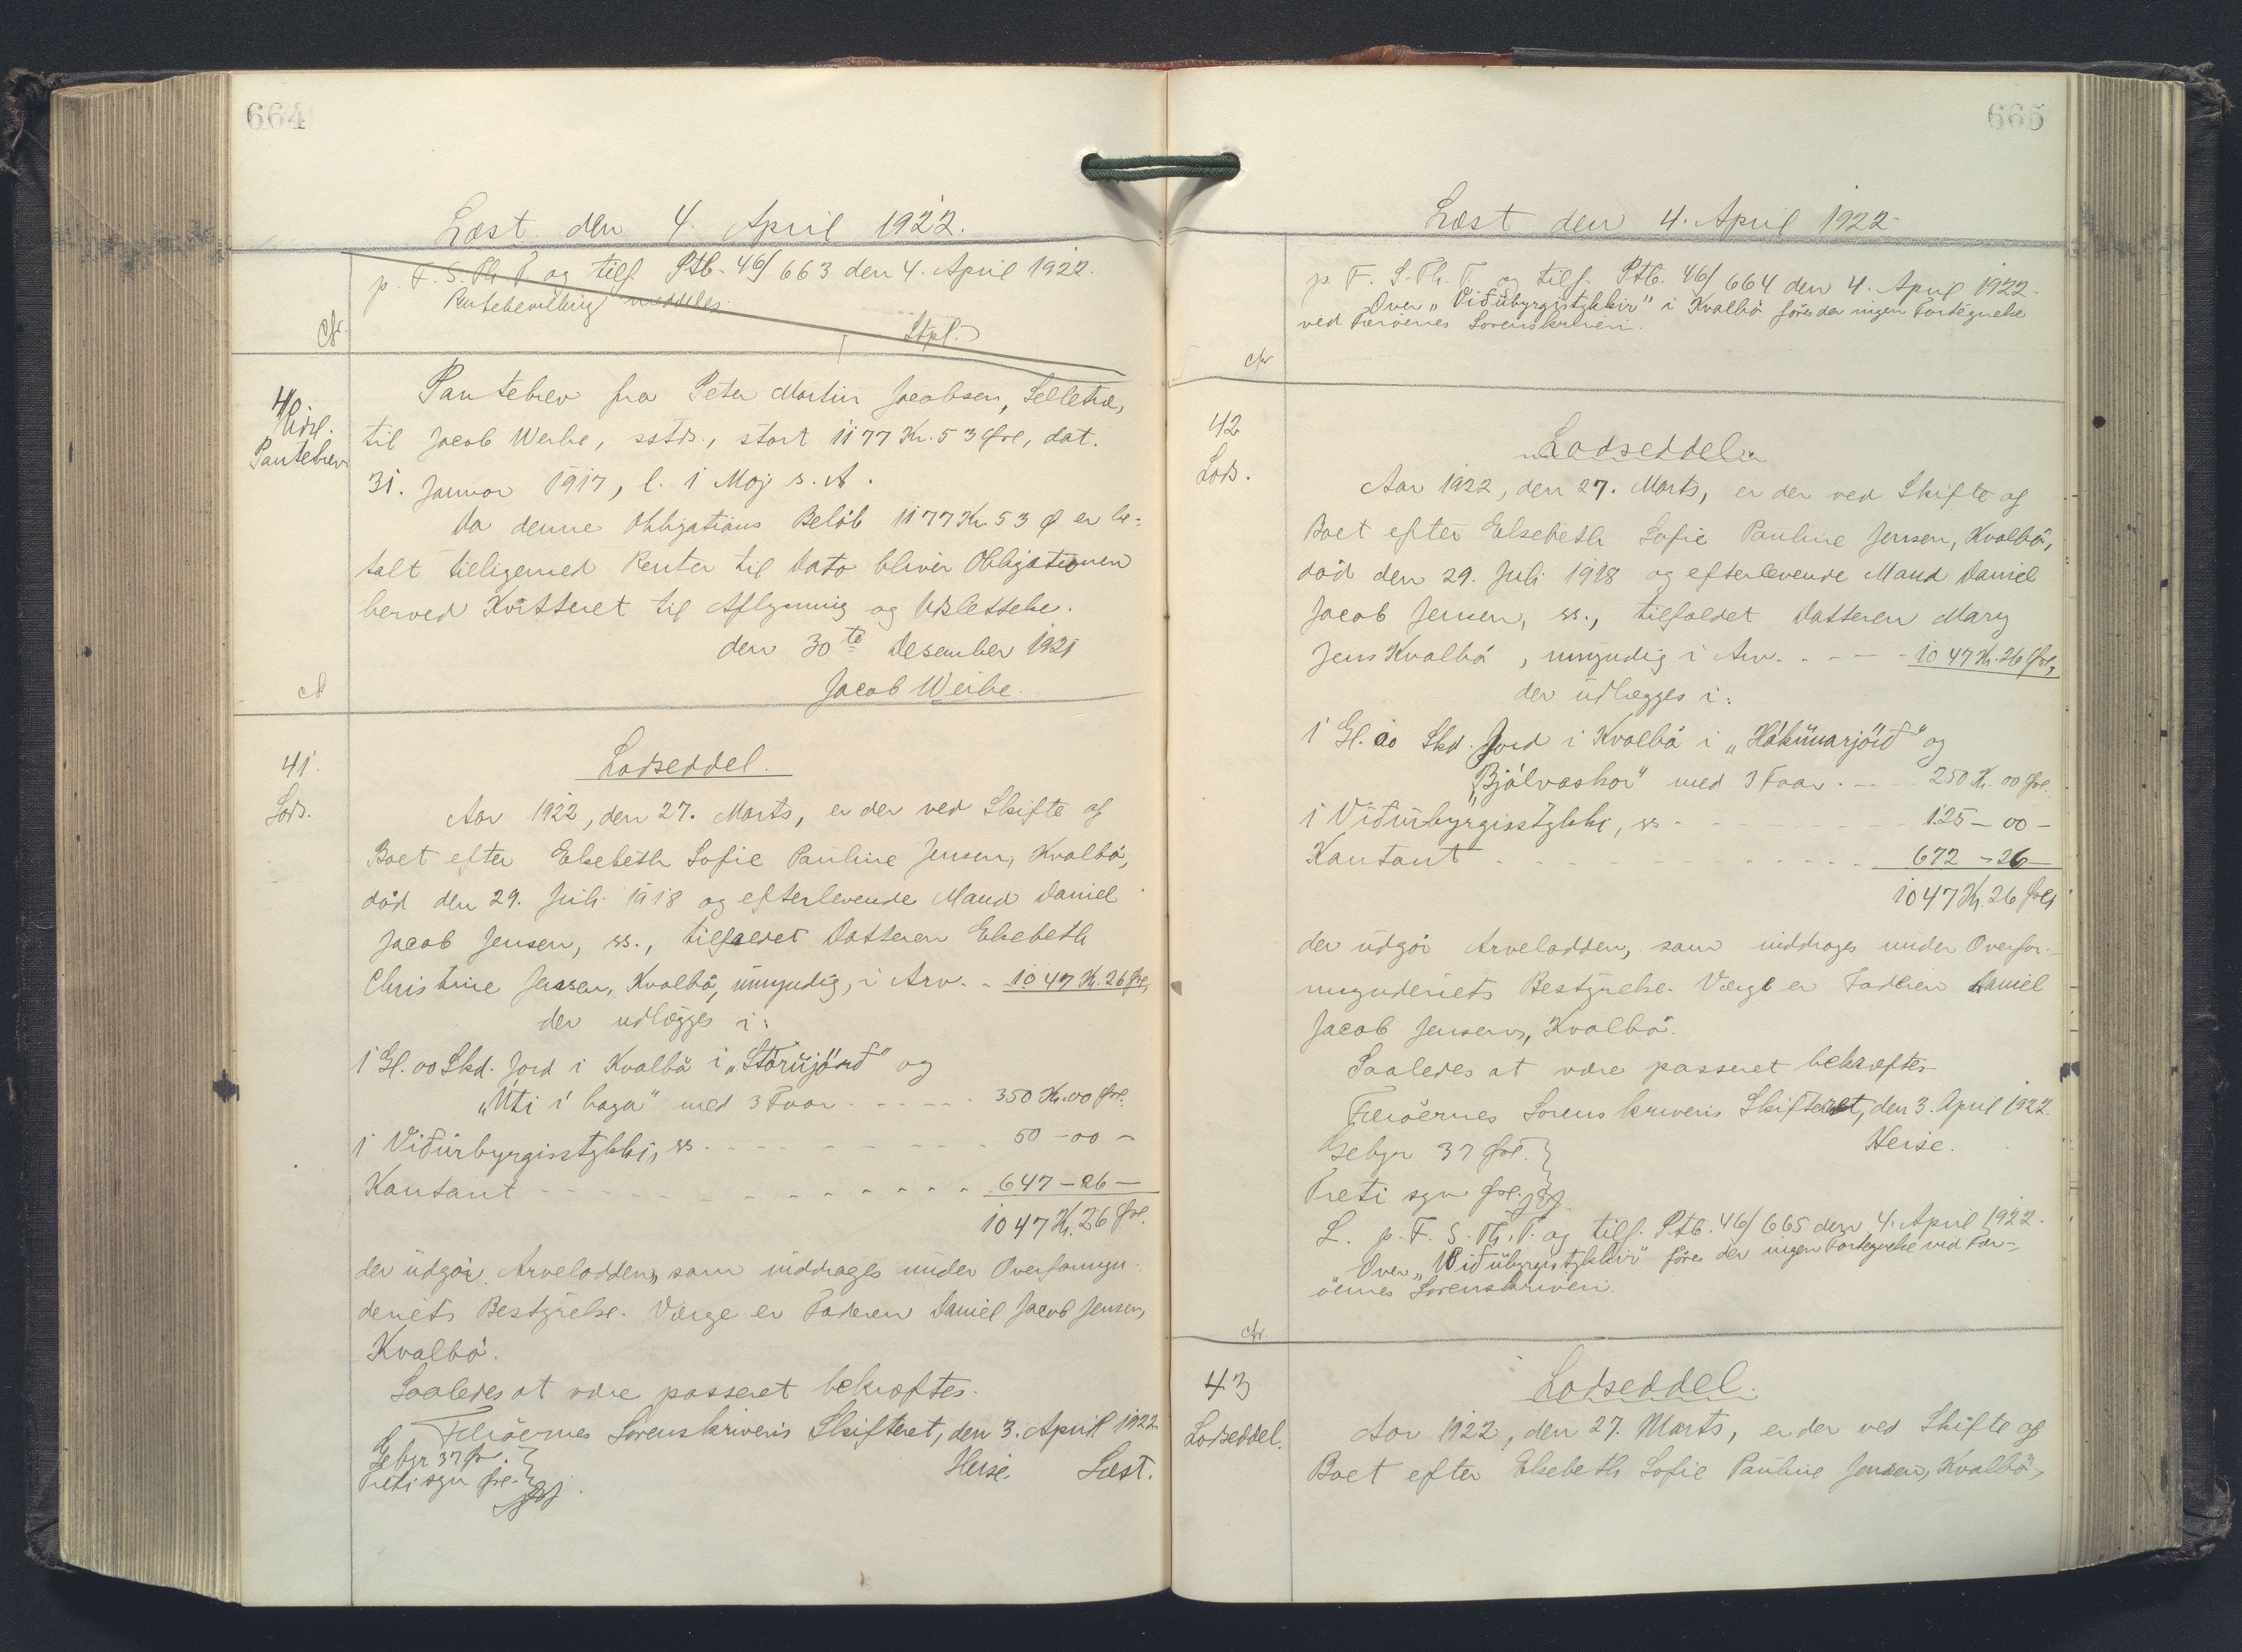 664
Læst den 4. April 1922.
p. F. S. Th. T. og tilf. Ptb. 46/663 den 4. April 1922.
Rentebevilling meddeles.
Stpl.
Cfr.
40.
Udsl.
Pantebrev
Pantebrev fra Peter Martin Jacobsen, Selletræ,
til Jacob Weihe, sstds., stort 1177 Kr. 53 Øre, dat.
31. Januar 1917, l. 1 Maj s. A.
Da denne Obligations Beløb 1177 Kr. 53 Ø er be-
talt tilligemed Renter til Dato bliver Obligationen
herved Kvitteret til Aflysning og Udslettelse.
den 30te Desember 1921
Jacob Weihe.
41.
Lods.
Lodseddel.
Aar 1922, den 27. Marts, er der ved Skifte af
Boet efter Elsebeth Sofie Pauline Jensen, Kvalbø,
död den 29. Juli 1918 og efterlevende Mand Daniel
Jacob Jensen, ss., tilfaldet Datteren Elsebeth
Christine Jensen, Kvalbø, umyndig, i Arv. - 1047 Kr. 26 Øre,
der udlægges i:
1 Gl. 00 Skd. Jord i Kvalbø i „Stórujörð" og
„Úti í haga" med 3 Faar - - - - - 350 Kr. 00 Øre.
1 Viðurbyrgisstykki, ss. - - - - - - - - 50 - 00 -
Kontant - - - - - - - - - - - 647 - 26 -
1047 Kr. 26 Øre.
der udgør Arvelodden, som inddrages under Overformyn-
deriets Bestyrelse. Værge er Faderen Daniel Jacob Jensen,
Kvalbø.
Saaledes at være passeret bekræftes.
Færöernes Sorenskriveris Skifteret, den 3. April 1922
Gebyr 37 Øre.
Heise. Læst.
Treti syv Øre.
665
Læst den 4. April 1922
p. F. S. Th. T. og tilf. Ptb. 46/664 den 4. April 1922.
Over „Viðubyrgistykkir" i Kvalbø föres der ingen Fortegnelse
ved Færöernes Sorenskriveri.
Cfr
42
Lods.
Lodseddel
Aar 1922, den 27. Marts, er der ved Skifte af
Boet efter Elsebeth Sofie Pauline Jensen, Kvalbø,
död den 29. Juli 1918 og efterlevende Mand Daniel
Jacob Jensen, ss., tilfaldet Datteren Mary
Jens Kvalbø, umyndig i Arv. - - - - 1047 Kr. 26 Øre,
der udlægges i:
1 Gl. 00 Skd. Jord i Kvalbø i „Hákunarjörð" og
„Bjálvaskor" med 3 Faar. - - 250 Kr. 00 Øre.
1 Viðurbyrgisstykki, ss - - - - - - - - 125 - 00 -
Kontant - - - - - - - - - - - 672 - 26 -
1047 Kr. 26 Øre
der udgör Arvelodden, som inddrages under Overfor-
mynderiets Bestyrelse. Værge er Faderen Daniel
Jacob Jensen, Kvalbø.
Saaledes at være passeret bekræftes
Færöernes Sorenskriveris Skifteret, den 3. April 1922.
Gebyr 37 Øre.
Heise.
Treti syv Øre.
L. p. F. S. Th. T. og tilf. Ptb. 46/665 den 4. April 1922.
Over „Viðubyrgistykkir" föres der ingen Fortegnelse ved Fær-
öernes Sorenskriveri.
Cfr.
43
Lodseddel.
Lodseddel.
Aar 1922, den 27. Marts, er der ved Skifte af
Boet efter Elsebeth Sofie Pauline Jensen, Kvalbø,